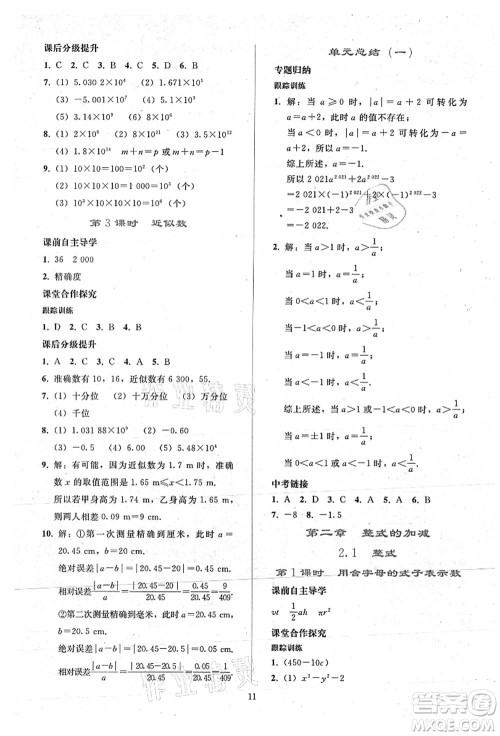 课后分级提升
1. C 2. C 3. C 4. C 5. B 6. A
7. (1) 5.030 2×10⁴ (2) 1.671×10⁵
(3) －5.001×10⁶ (4) 5.67×10⁸
8. (1) 2×10⁵ (2) 8×10¹⁰ (3) 2.5×10¹¹
(4) 1.8×10¹⁴ m＋n＝p或m＋n＝p－1
9. (1) 10×10＝100＝10²
(2) 10×10×10＝1 000＝10³
(3) 10×10×10×10＝10 000＝10⁴
第3课时 近似数
课前自主导学
1. 36 2 000
2. 精确度
课堂合作探究
跟踪训练
1. D 2. C 3. B 4. C
课后分级提升
1. A 2. C 3. D 4. A 5. B
6. 准确数有10，16，近似数有6 300，55.
7. (1) 十分位 (2) 十万位 (3) 百分位
(4) 千位
8. (1) 1.031 88×10⁹ (2) －0.5
(3) －5 (4) 6.00×10⁵
9. 解：有可能，因为近似数为1.7 m时，准确
数x的取值范围是1.65 m≤x＜1.75 m.
所以若甲身高为1.65 m，乙身高为1.74 m，
则两人相差9 cm.
10. 解：①第一次测量精确到厘米，此时a＝
20.45 cm，b＝20 cm，
绝对误差|a－b|＝|20.45－20|＝0.45 cm，
相对误差|a－b|/a＝|20.45－20|/20.45＝0.45/20.45＝9/409.
②第二次测量精确到毫米，此时a＝
20.45 cm，b＝20.5 cm，
绝对误差|a－b|＝|20.45－20.5|＝0.05 cm，
相对误差|a－b|/a＝|20.45－20.5|/20.45＝0.05/20.45＝1/409.
单元总结（一）
专题归纳
跟踪训练
1. 解：当a≥0时，|a|＝a＋2，a＝a＋2，
a的值不存在；
当a＜0时，|a|＝a＋2，－a＝a＋2，
a＝－1.
综上所述，a＝－1.
所以2 021a²⁰²¹＋2a²⁰²²＋a²⁰²³
＝2 021×(－1)²⁰²¹＋2×(－1)²⁰²²＋(－1)²⁰²³
＝－2 021＋2－1
＝－2 020.
2. 解：当a＞1时，a＞1/a；
当a＝1时，a＝1/a；
当0＜a＜1时，a＜1/a；
当－1＜a＜0时，a＞1/a；
当a＝－1时，a＝1/a；
当a＜－1时，a＜1/a.
综上所述，当a＞1或－1＜a＜0时，
a＞1/a；
当a＝±1时，a＝1/a；
当0＜a＜1或a＜－1时，a＜1/a.
中考链接
1. A 2. C 3. B 4. C 5. D 6. B
7. －8 8. －1.5
第二章 整式的加减
2.1 整式
第1课时 用含字母的式子表示数
课前自主导学
vt 1/2ah πr²
课堂合作探究
跟踪训练
1. (450－10c)
2. (1) x²－y²－2
11
作业精灵
答案圈
MXQE.COM